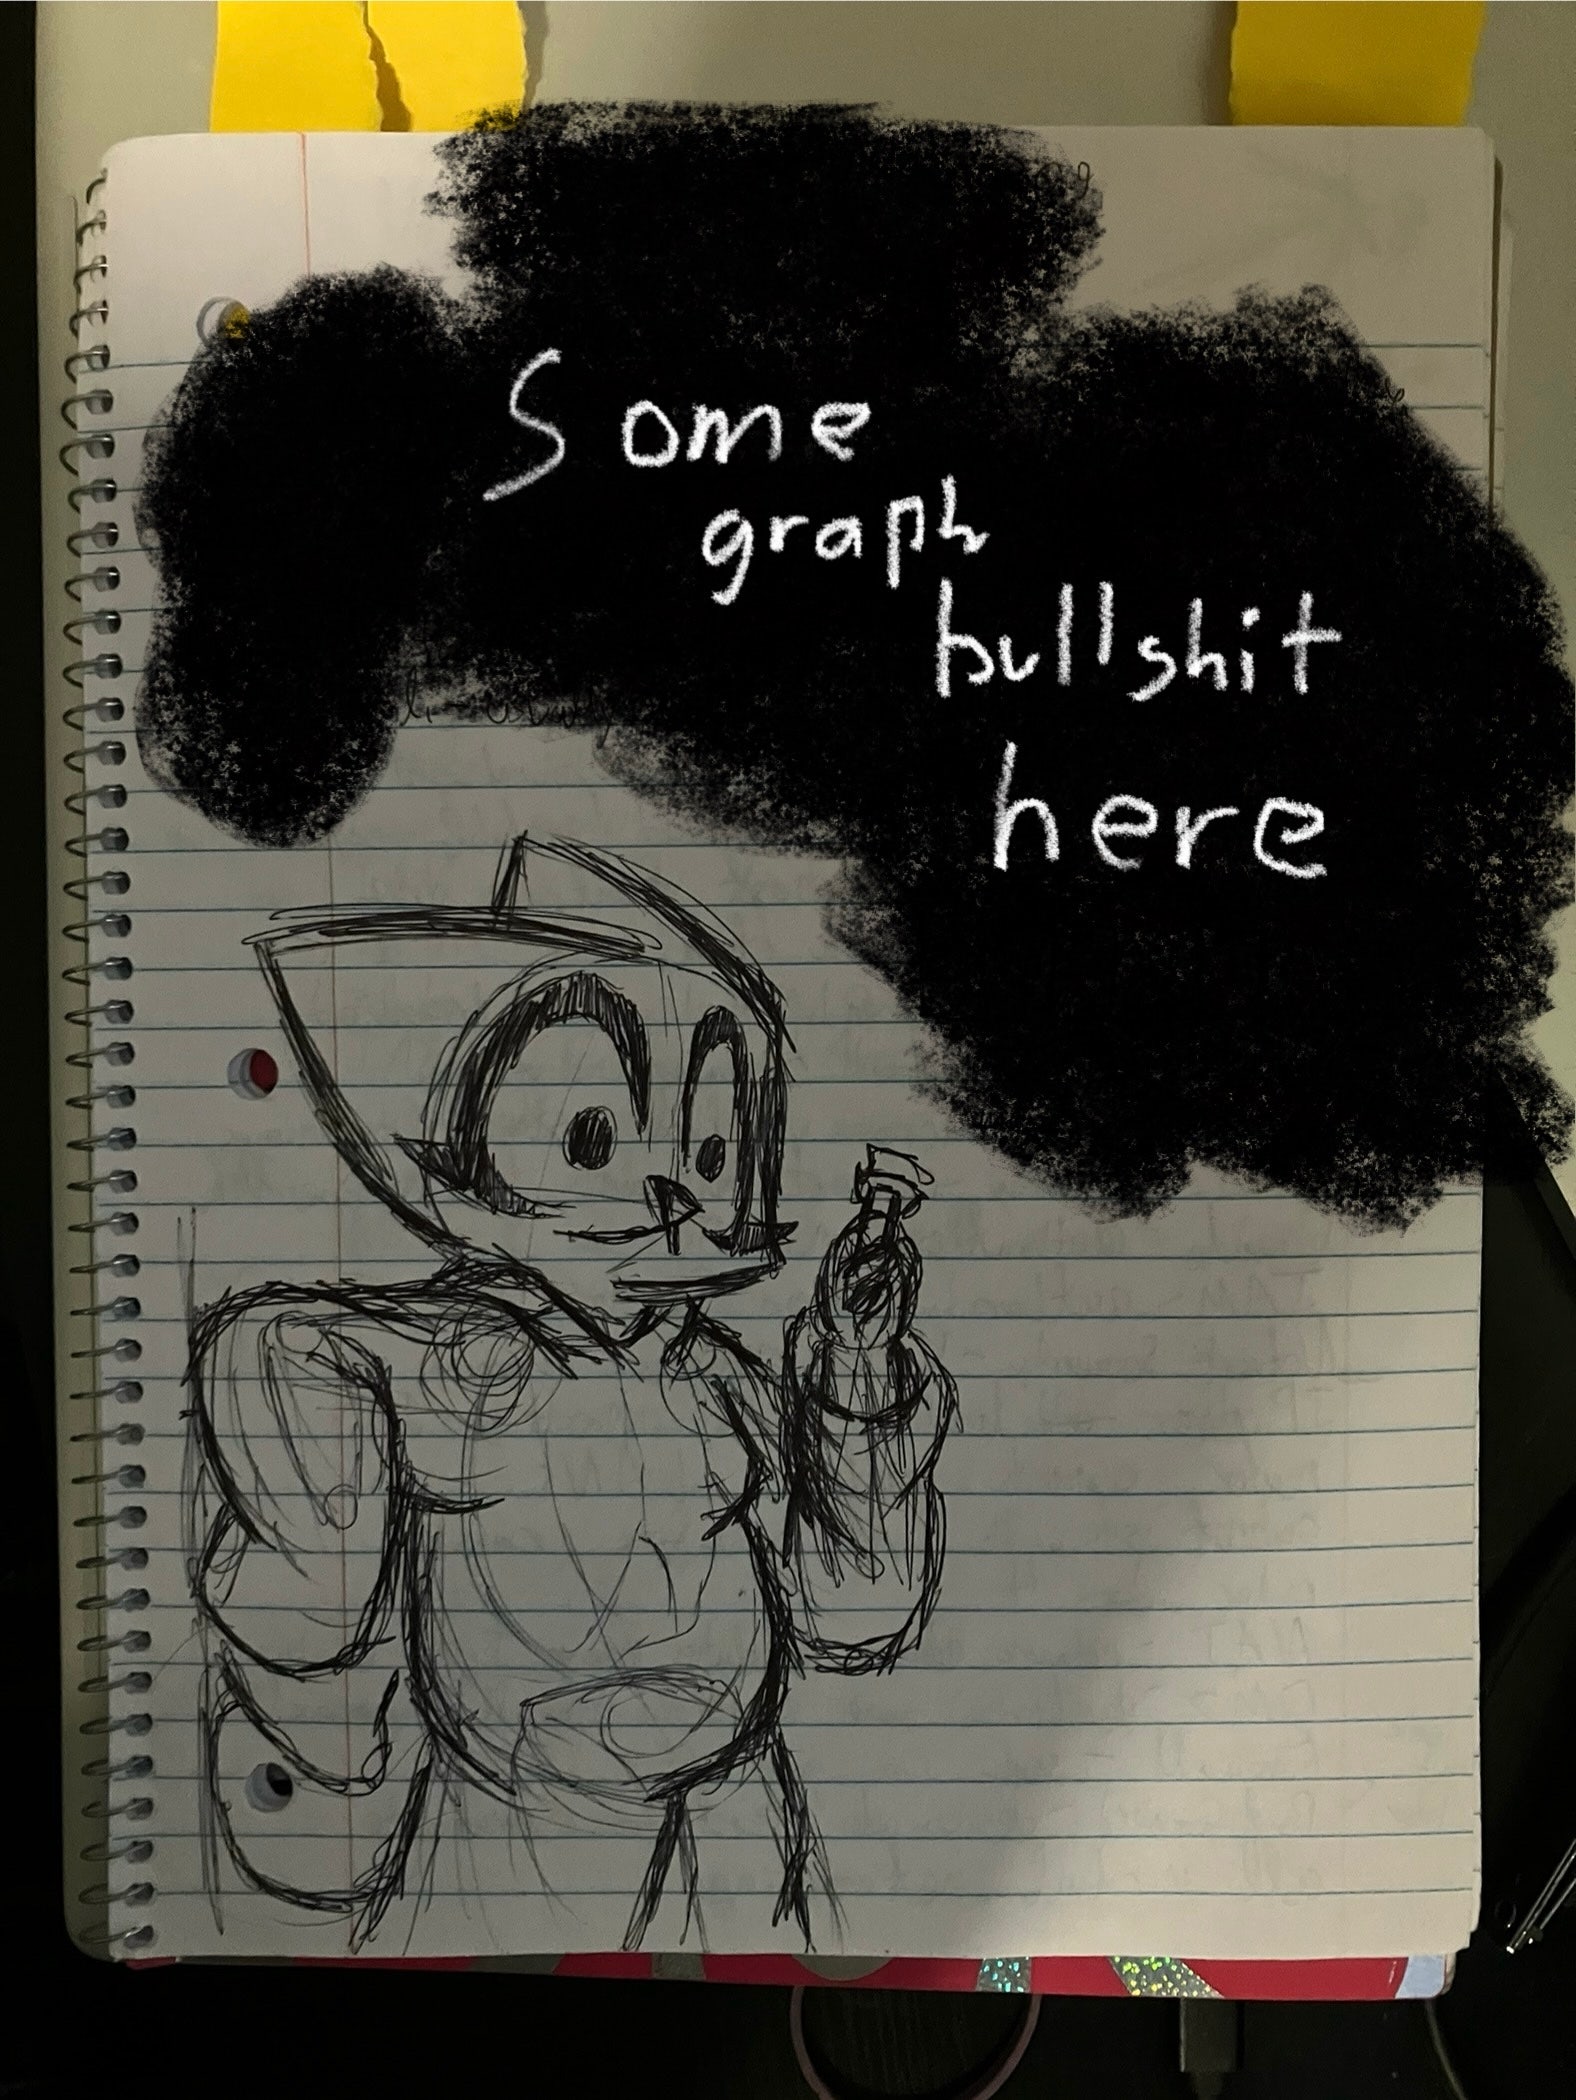 Some
graph
bullshit
here